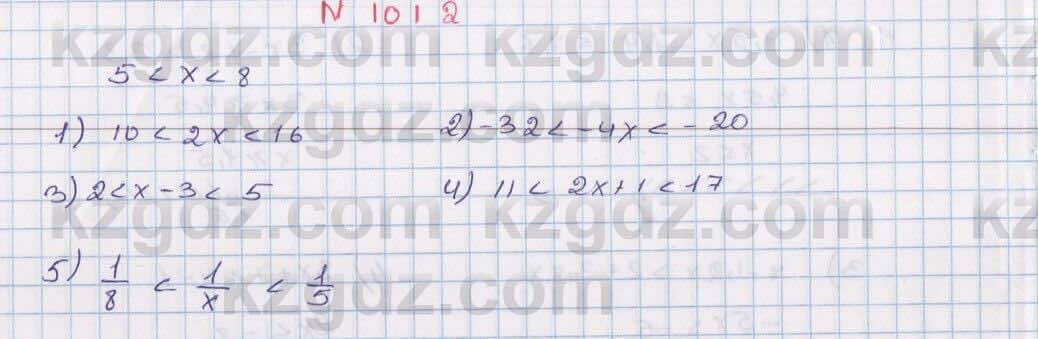 N 1012
5 < x < 8
1) 10 < 2x < 16 2) -32 < -4x < -20
3) 2 < x - 3 < 5 4) 11 < 2x + 1 < 17
5) 1/8 < 1/x < 1/5
kzgdz.com kzgdz.com kzgdz.com
kzgdz.com
kzgdz.com kzgdz.com kzgdz.com
kzgdz.com